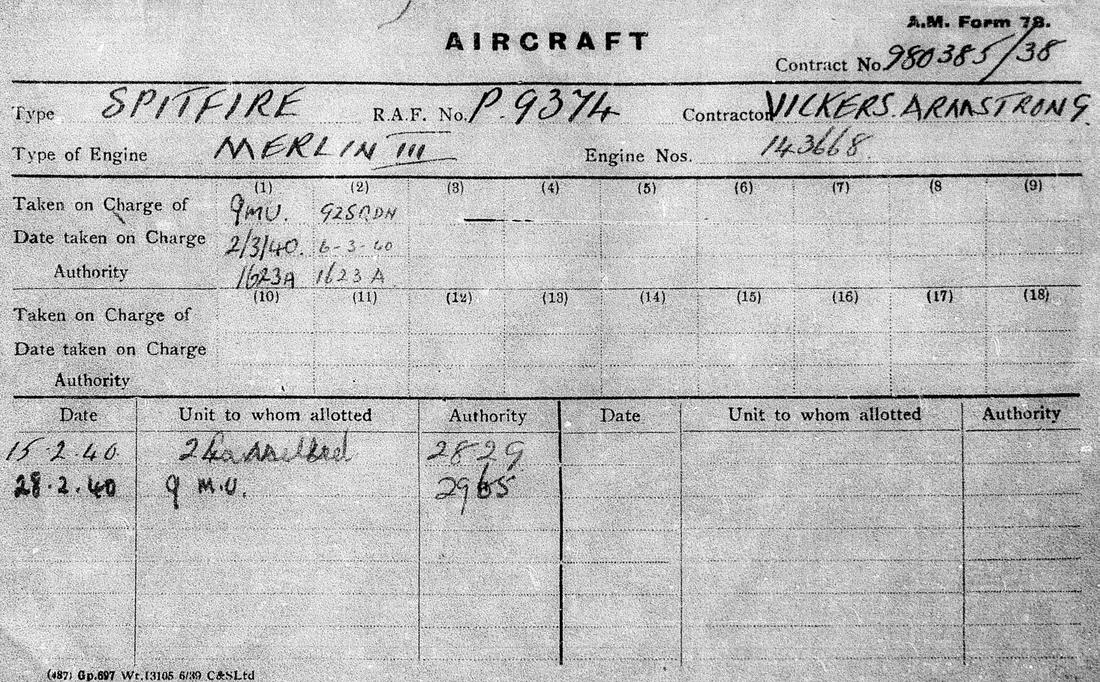 A.M. Form 78.
AIRCRAFT
Contract No. 980385/38
Type SPITFIRE R.A.F. No. P.9374 Contractor VICKERS. ARMSTRONG.
Type of Engine MERLIN III Engine Nos. 143668.
(1) (2) (3) (4) (5) (6) (7) (8 (9)
Taken on Charge of 9MU. 92SQDN
Date taken on Charge 2/3/40. 6-3-40
Authority 1623A 1623A
(10) (11) (12) (13) (14) (15) (16) (17) (18)
Taken on Charge of
Date taken on Charge
Authority
Date Unit to whom allotted Authority Date Unit to whom allotted Authority
15.2.40 2829
28.2.40 9 M.U. 2965
(487) Gp.697 Wt.13105 6/39 C&SLtd